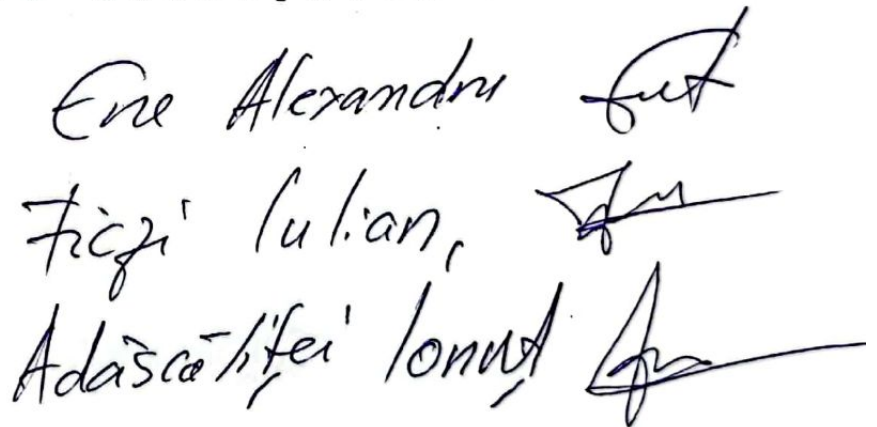 Ene Alexandru
Ficzi Iulian,
Adăscăliței Ionuț